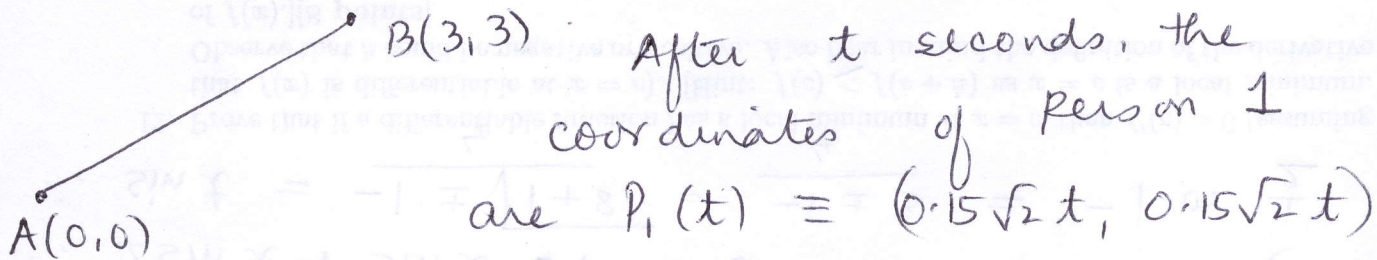 B(3,3)
After t seconds, the
coordinates of person 1
are P₁(t) ≡ (0.15√2 t, 0.15√2 t)
A(0,0)